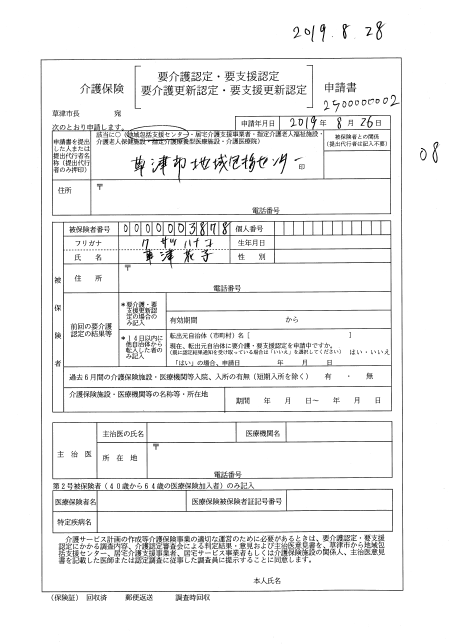 2019.8.28
介護保険
要介護認定・要支援認定
要介護更新認定・要支援更新認定
申請書
2500000002
草津市長 宛
次のとおり申請します。
申請年月日 2019年 8月 26日
申請書を提出した人または提出代行者名称(提出代行者のみ押印)
該当に○(地域包括支援センター・居宅介護支援事業者・指定介護老人福祉施設・
介護老人保健施設・指定介護療養型医療施設・介護医療院)
草津市地域包括センター 印
被保険者との関係
(提出代行者は記入不要)
08
住所 〒
電話番号
被保険者
被保険者番号 0000003878 個人番号
フリガナ クサツハナコ 生年月日
氏名 草津花子 性別
住所 〒
電話番号
前回の要介護認定の結果等
*要介護・要支援更新認定の場合のみ記入
有効期間 から
*14日以内に他自治体から転出した者のみ記入
転出元自治体(市町村)名[ ]
現在、転出元自治体に要介護・要支援認定を申請中ですか。
(既に認定結果通知を受け取っている場合は「いいえ」を選択してください) はい・いいえ
「はい」の場合、申請日 年 月 日
過去6月間の介護保険施設・医療機関等入院、入所の有無(短期入所を除く) 有 ・ 無
介護保険施設・医療機関等の名称等・所在地 期間 年 月 日~ 年 月 日
主治医
主治医の氏名 医療機関名
所在地 〒
電話番号
第2号被保険者(40歳から64歳の医療保険加入者)のみ記入
医療保険者名 医療保険被保険者証記号番号
特定疾病名
介護サービス計画の作成等介護保険事業の適切な運営のために必要があるときは、要介護認定・要支援
認定にかかる調査内容、介護認定審査会による判定結果・意見および主治医意見書を、草津市から地域包
括支援センター、居宅介護支援事業者、居宅サービス事業者もしくは介護保険施設の関係人、主治医意見
書を記載した医師または認定調査に従事した調査員に提示することに同意します。
本人氏名
(保険証) 回収済 郵便返送 調査時回収